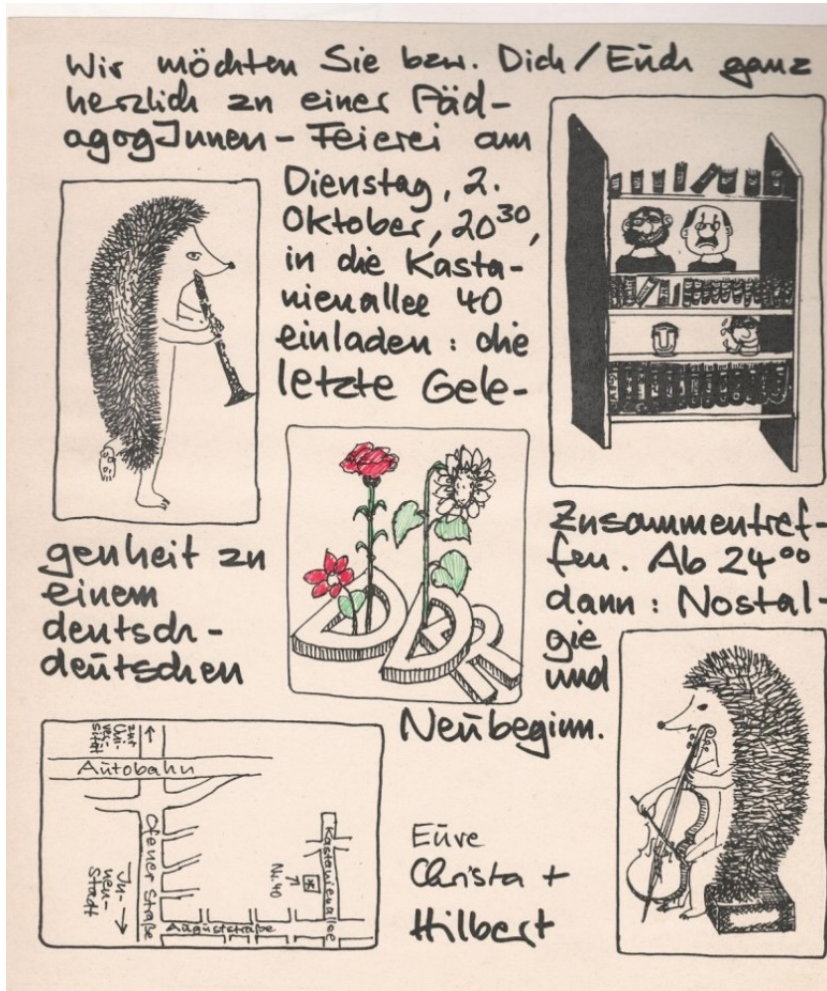 Wir möchten Sie bzw. Dich / Euch ganz
herzlich zu einer Päd-
agogInnen-Feierei am
Dienstag, 2.
Oktober, 20³⁰,
in die Kasta-
nienallee 40
einladen: die
letzte Gele-
genheit zu
einem
deutsch-
deutschen
Zusammentref-
fen. Ab 24⁰⁰
dann: Nostal-
gie
und
Neubeginn.
DDR
zur
Uni-
ver-
sität
Autobahn
Ofener Straße
In-
nen-
Stadt
Auguststraße
Nr. 40
Kastanienallee
Eure
Christa +
Hilbert